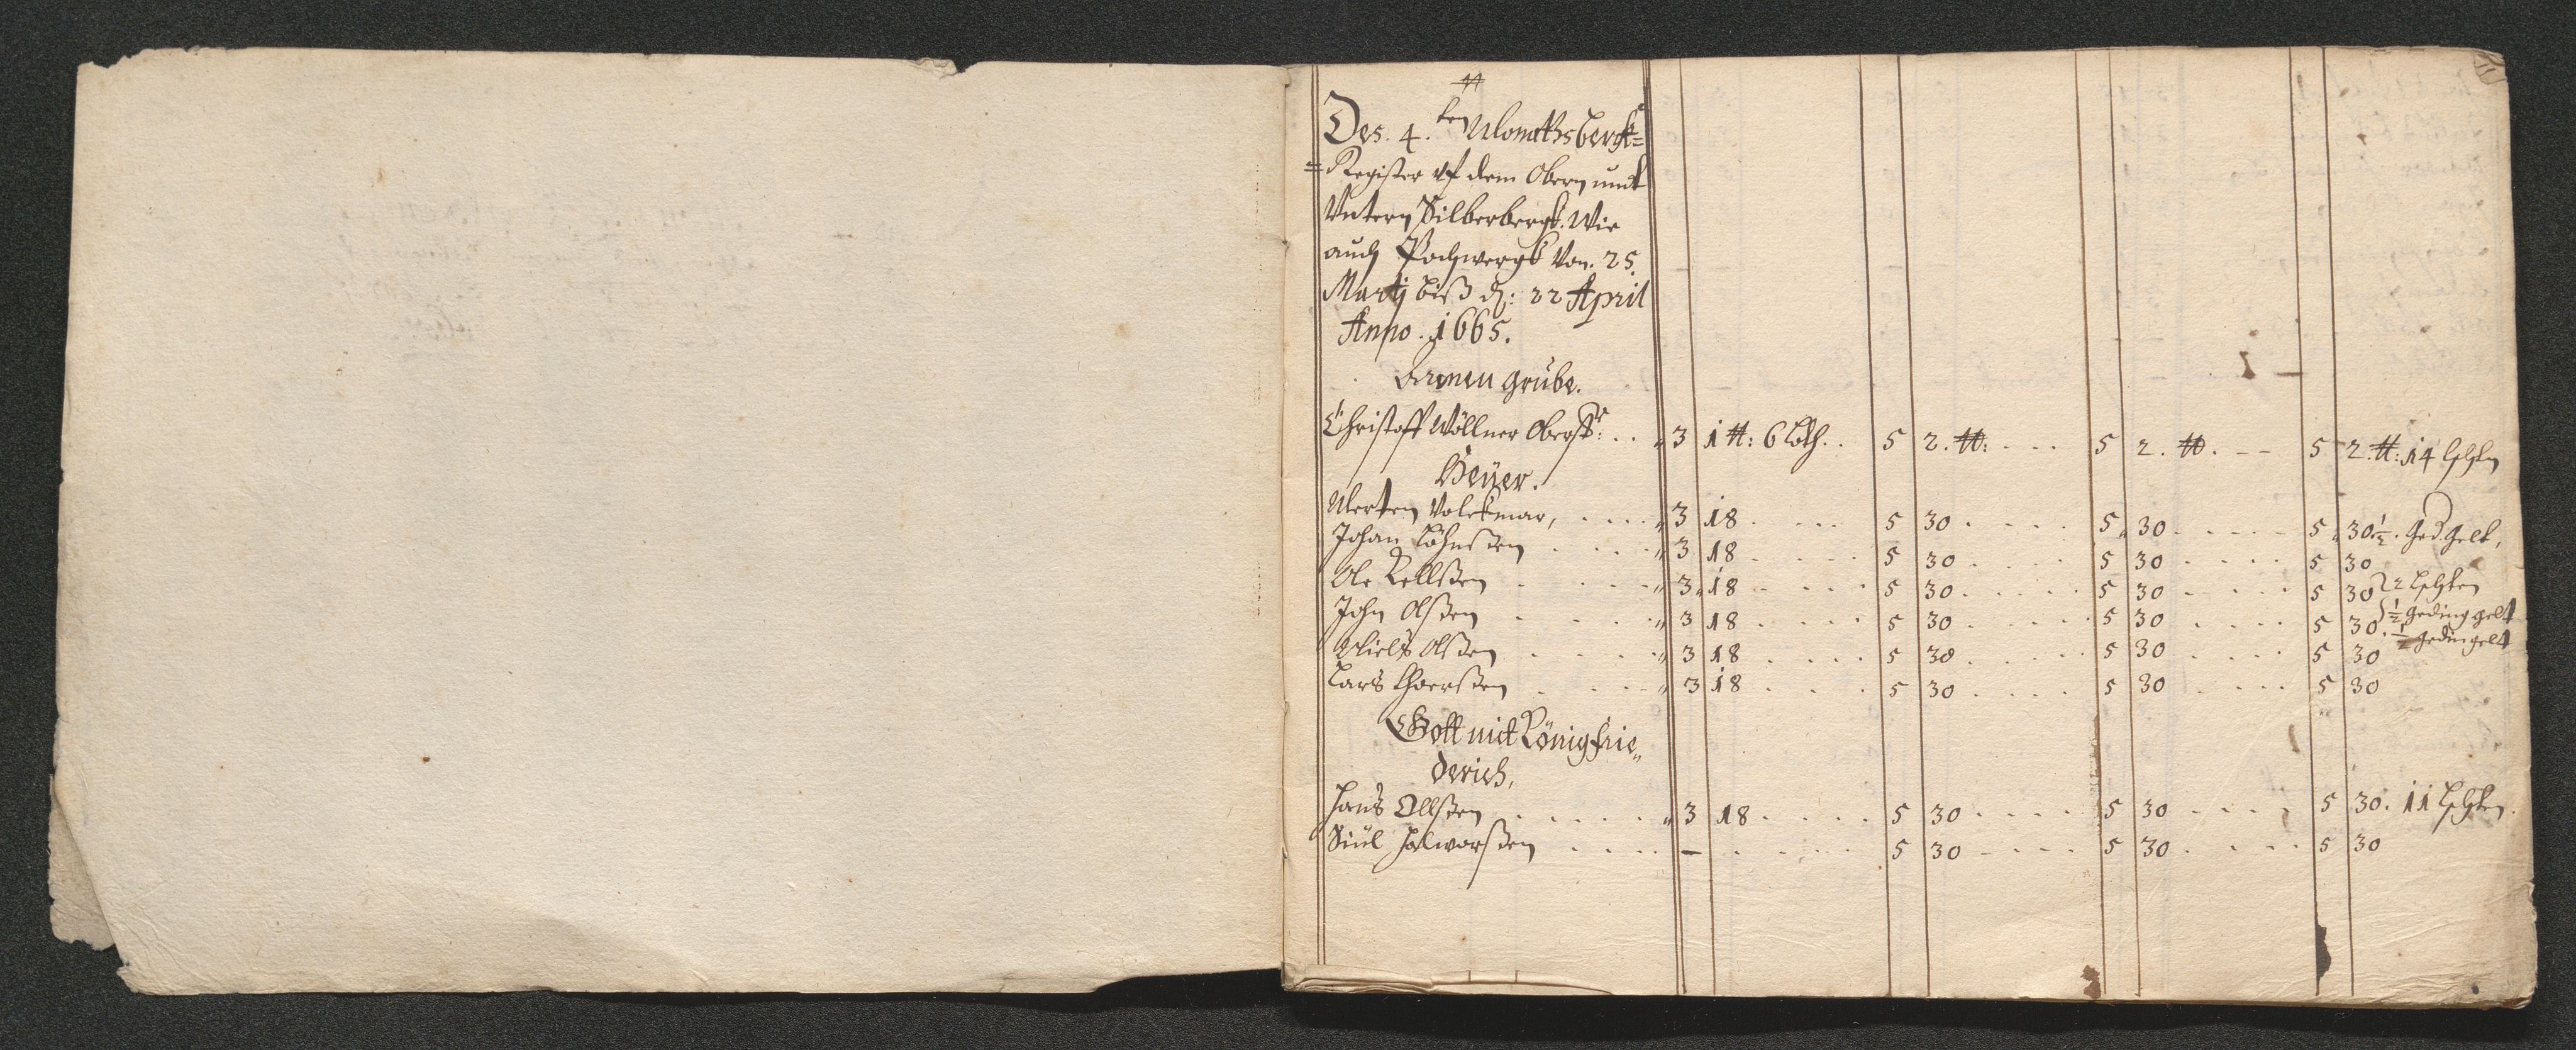 Des. 4. ten Monathsbergk=
=Register vf dem Obern undt
Vntern Silberbergk. Wie
auch Pochwergk Von. 25.
Martj biß d: 22 April
Anno. 1665.
Armen grube.
Christoff Wöllner Oberstr: . . „ 3 1 ℔: 6 Loth. . 5 2. ℔: - - - 5 2. ℔. - - 5 2. ℔: 14
Heüer.
Merten Volckmar, . . . . „ 3 18 . . . . 5 30 . . . . . 5 „ 30 . . . . . 5 „ 30 ½. ged gelt,
Johan . . . . „ 3 18 . . . . 5 30 . . . . 5 30 . . . . 5 30
Ole Kellßen . . . . „ 3 „ 18 . . . . 5 30 . . . . . 5 30 . . . . . 5 30 2
John Olßen . . . . . „ 3 18 . . . . 5 30 . . . . . 5 30 . . . . . 5 30. ½ geding gelt
Niels Olßen . . . . . „ 3 18 . . . . 5 30 . . . . . 5 30 . . . . 5 30 ½ gedingelt
Lars . . . . „ 3 18 . . . . 5 30 . . . . 5 30 . . . . 5 30
Gott mit König frie„
derich,
Hans Ollßen . . . . . „ 3 18 . . . . 5 30 . . . . 5 30 . . . . 5 30. 11
Siul Halworßen . . . . – . . . . . 5 30 . . . . 5 30 . . . . 5 30